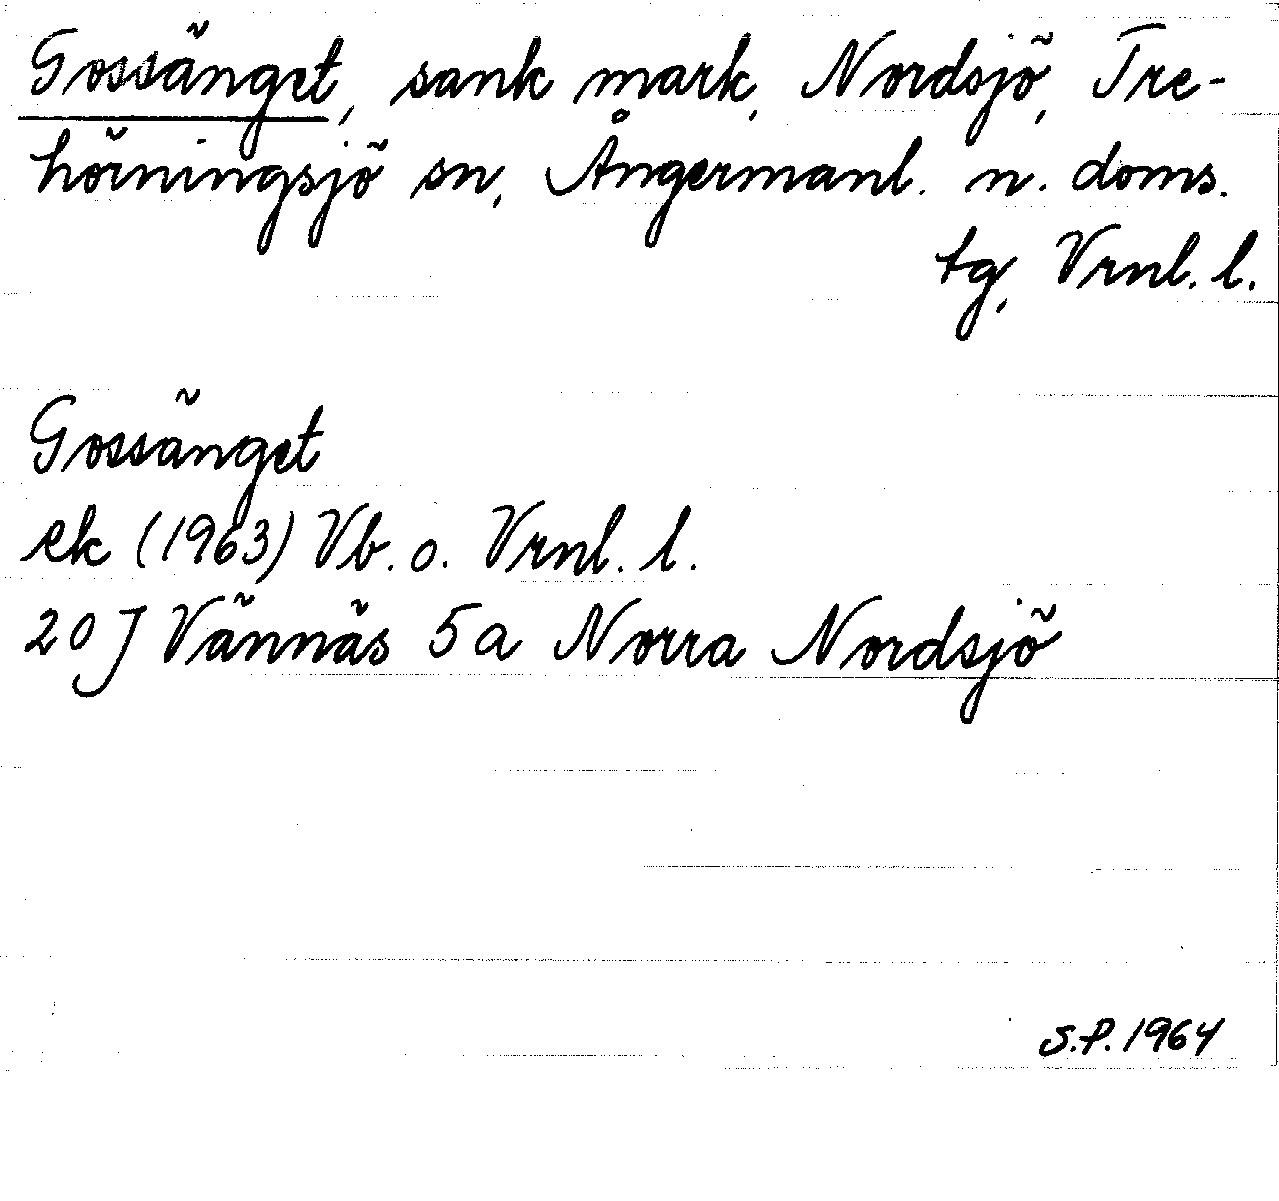 Gossänget, sank mark, Nordsjö, Tre-
hörningsjö sn, Ångermanl. n. doms.
tg, Vrnl. l.
Gossänget
ek (1963) Vb. o. Vrnl. l.
20 J Vännäs 5 a Norra Nordsjö
S.P. 1964